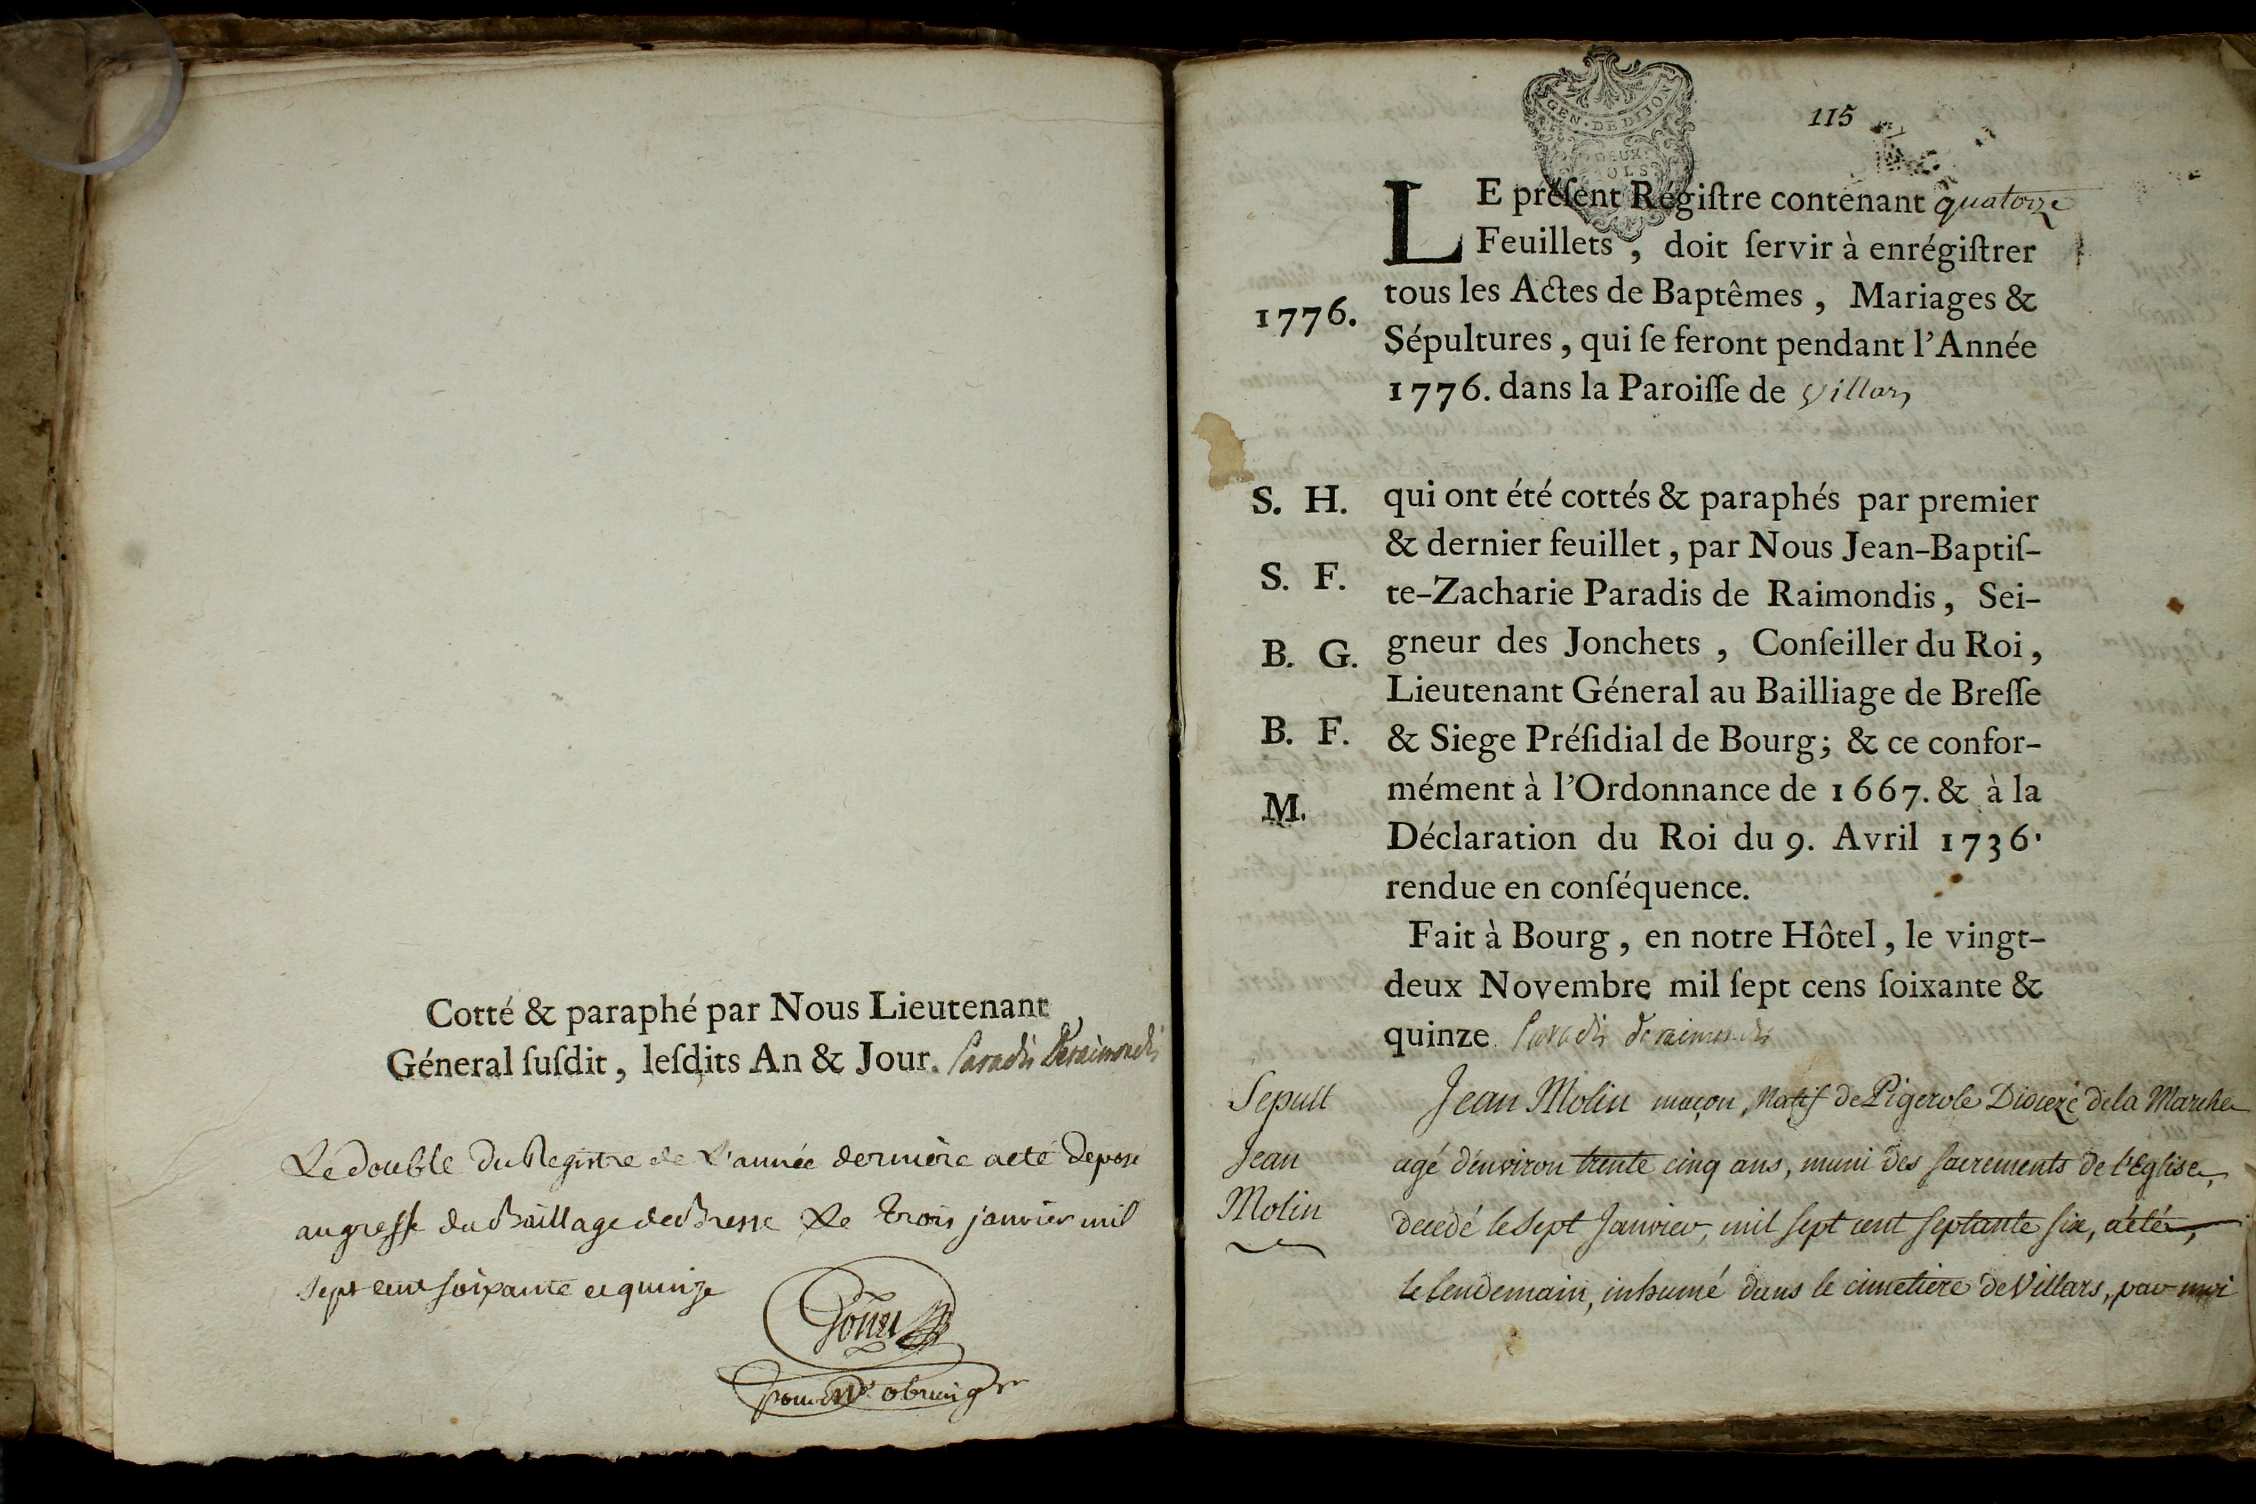 Cotté & paraphé par Nous Lieutenant
Géneral ſuſdit, leſdits An & Jour. Paradis Deraimondis
Le double du Registre de L'année derniere aeté deposé
augreffe du Baillage deBresse Le trois janvier mil
sept cent soixante et quinze
GEN. DE DIJON
DEUX
SOLS
115
LE préſent Régiſtre contenant quatorze
Feuillets, doit ſervir à enrégiſtrer
tous les Actes de Baptêmes, Mariages &
1776.
Sépultures, qui ſe feront pendant l'Année
1776. dans la Paroiſſe de Villars
S. H.
qui ont été cottés & paraphés par premier
& dernier feuillet, par Nous Jean-Baptiſ-
S. F.
te-Zacharie Paradis de Raimondis, Sei-
B. G.
gneur des Jonchets, Conſeiller du Roi,
Lieutenant Géneral au Bailliage de Breſſe
B. F.
& Siege Préſidial de Bourg; & ce confor-
M.
mément à l'Ordonnance de 1667. & à la
Déclaration du Roi du 9. Avril 1736.
rendue en conſéquence.
Fait à Bourg, en notre Hôtel, le vingt-
deux Novembre mil ſept cens ſoixante &
quinze. Paradis Deraimondis
Sepult
Jean
Molin
Jean Molin maçon, Natif de Pigerole Diocèze de la Marche
agé d'environ trente cinq ans, muni des sacrements de l'Eglise,
decédé le sept Janvier, mil sept cent septante six, a été,
le lendemain, inhumé dans le cimetiere de Villars, par moi